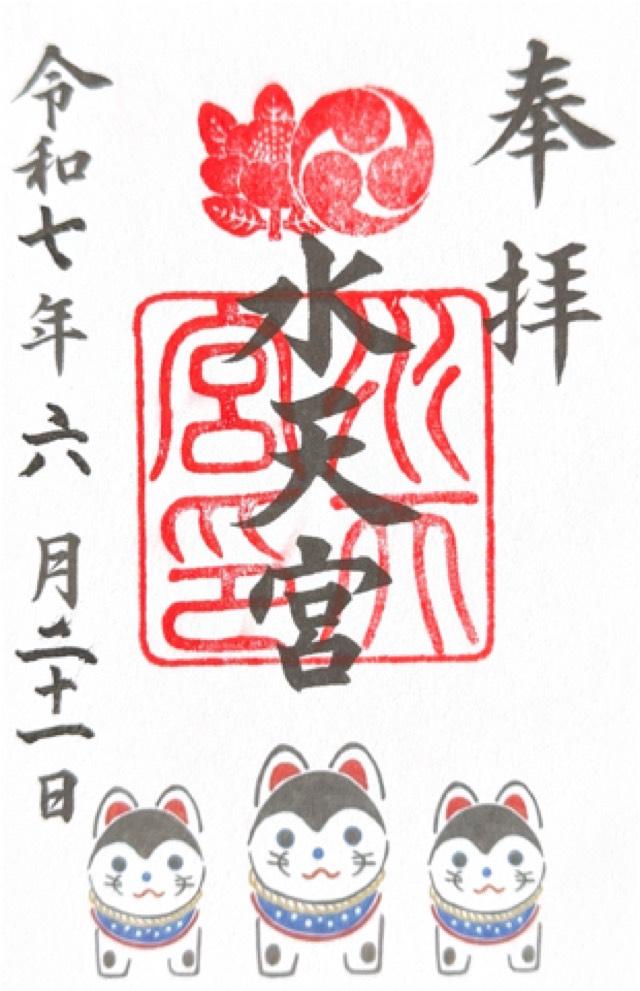 奉拝
水天宮
水天宮印
令和七年六月二十一日